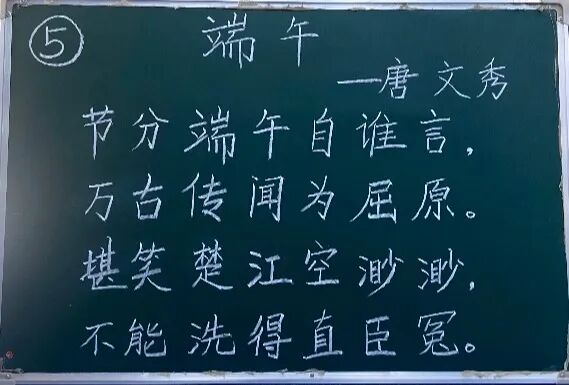 ⑤
端午
—唐 文秀
节分端午自谁言，
万古传闻为屈原。
堪笑楚江空渺渺，
不能洗得直臣冤。